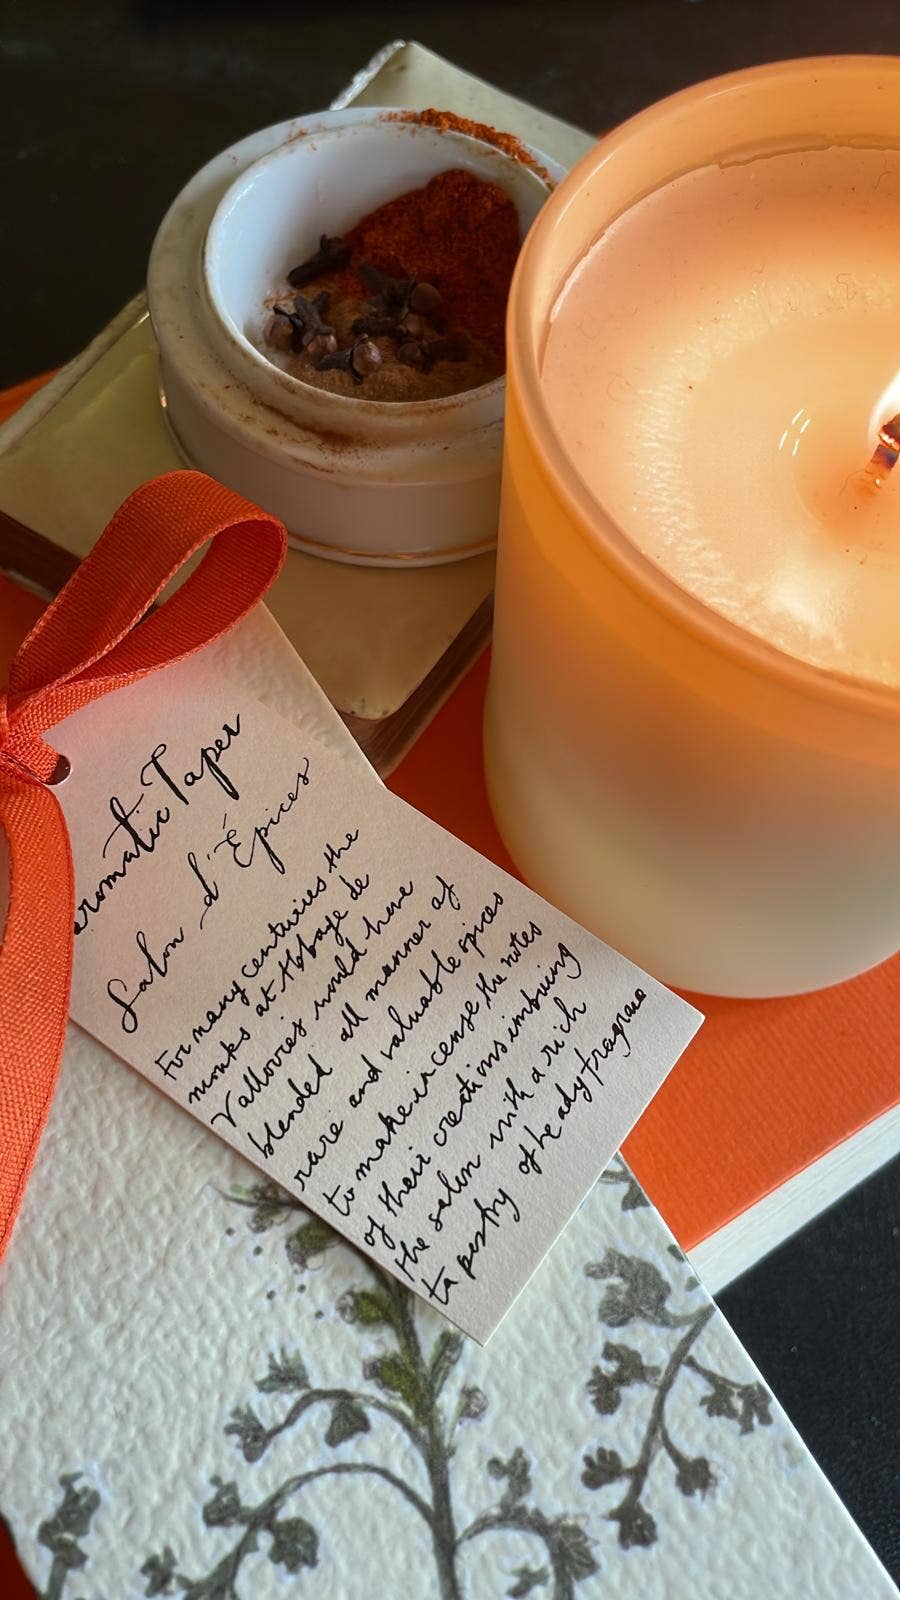 Aromatic Taper
Salon d'Épices
For many centuries the
monks at Abbaye de
Valloires would have
blended all manner of
rare and valuable spices
to make incense the notes
of their creations imbuing
the salon with a rich
tapestry of heady fragrance